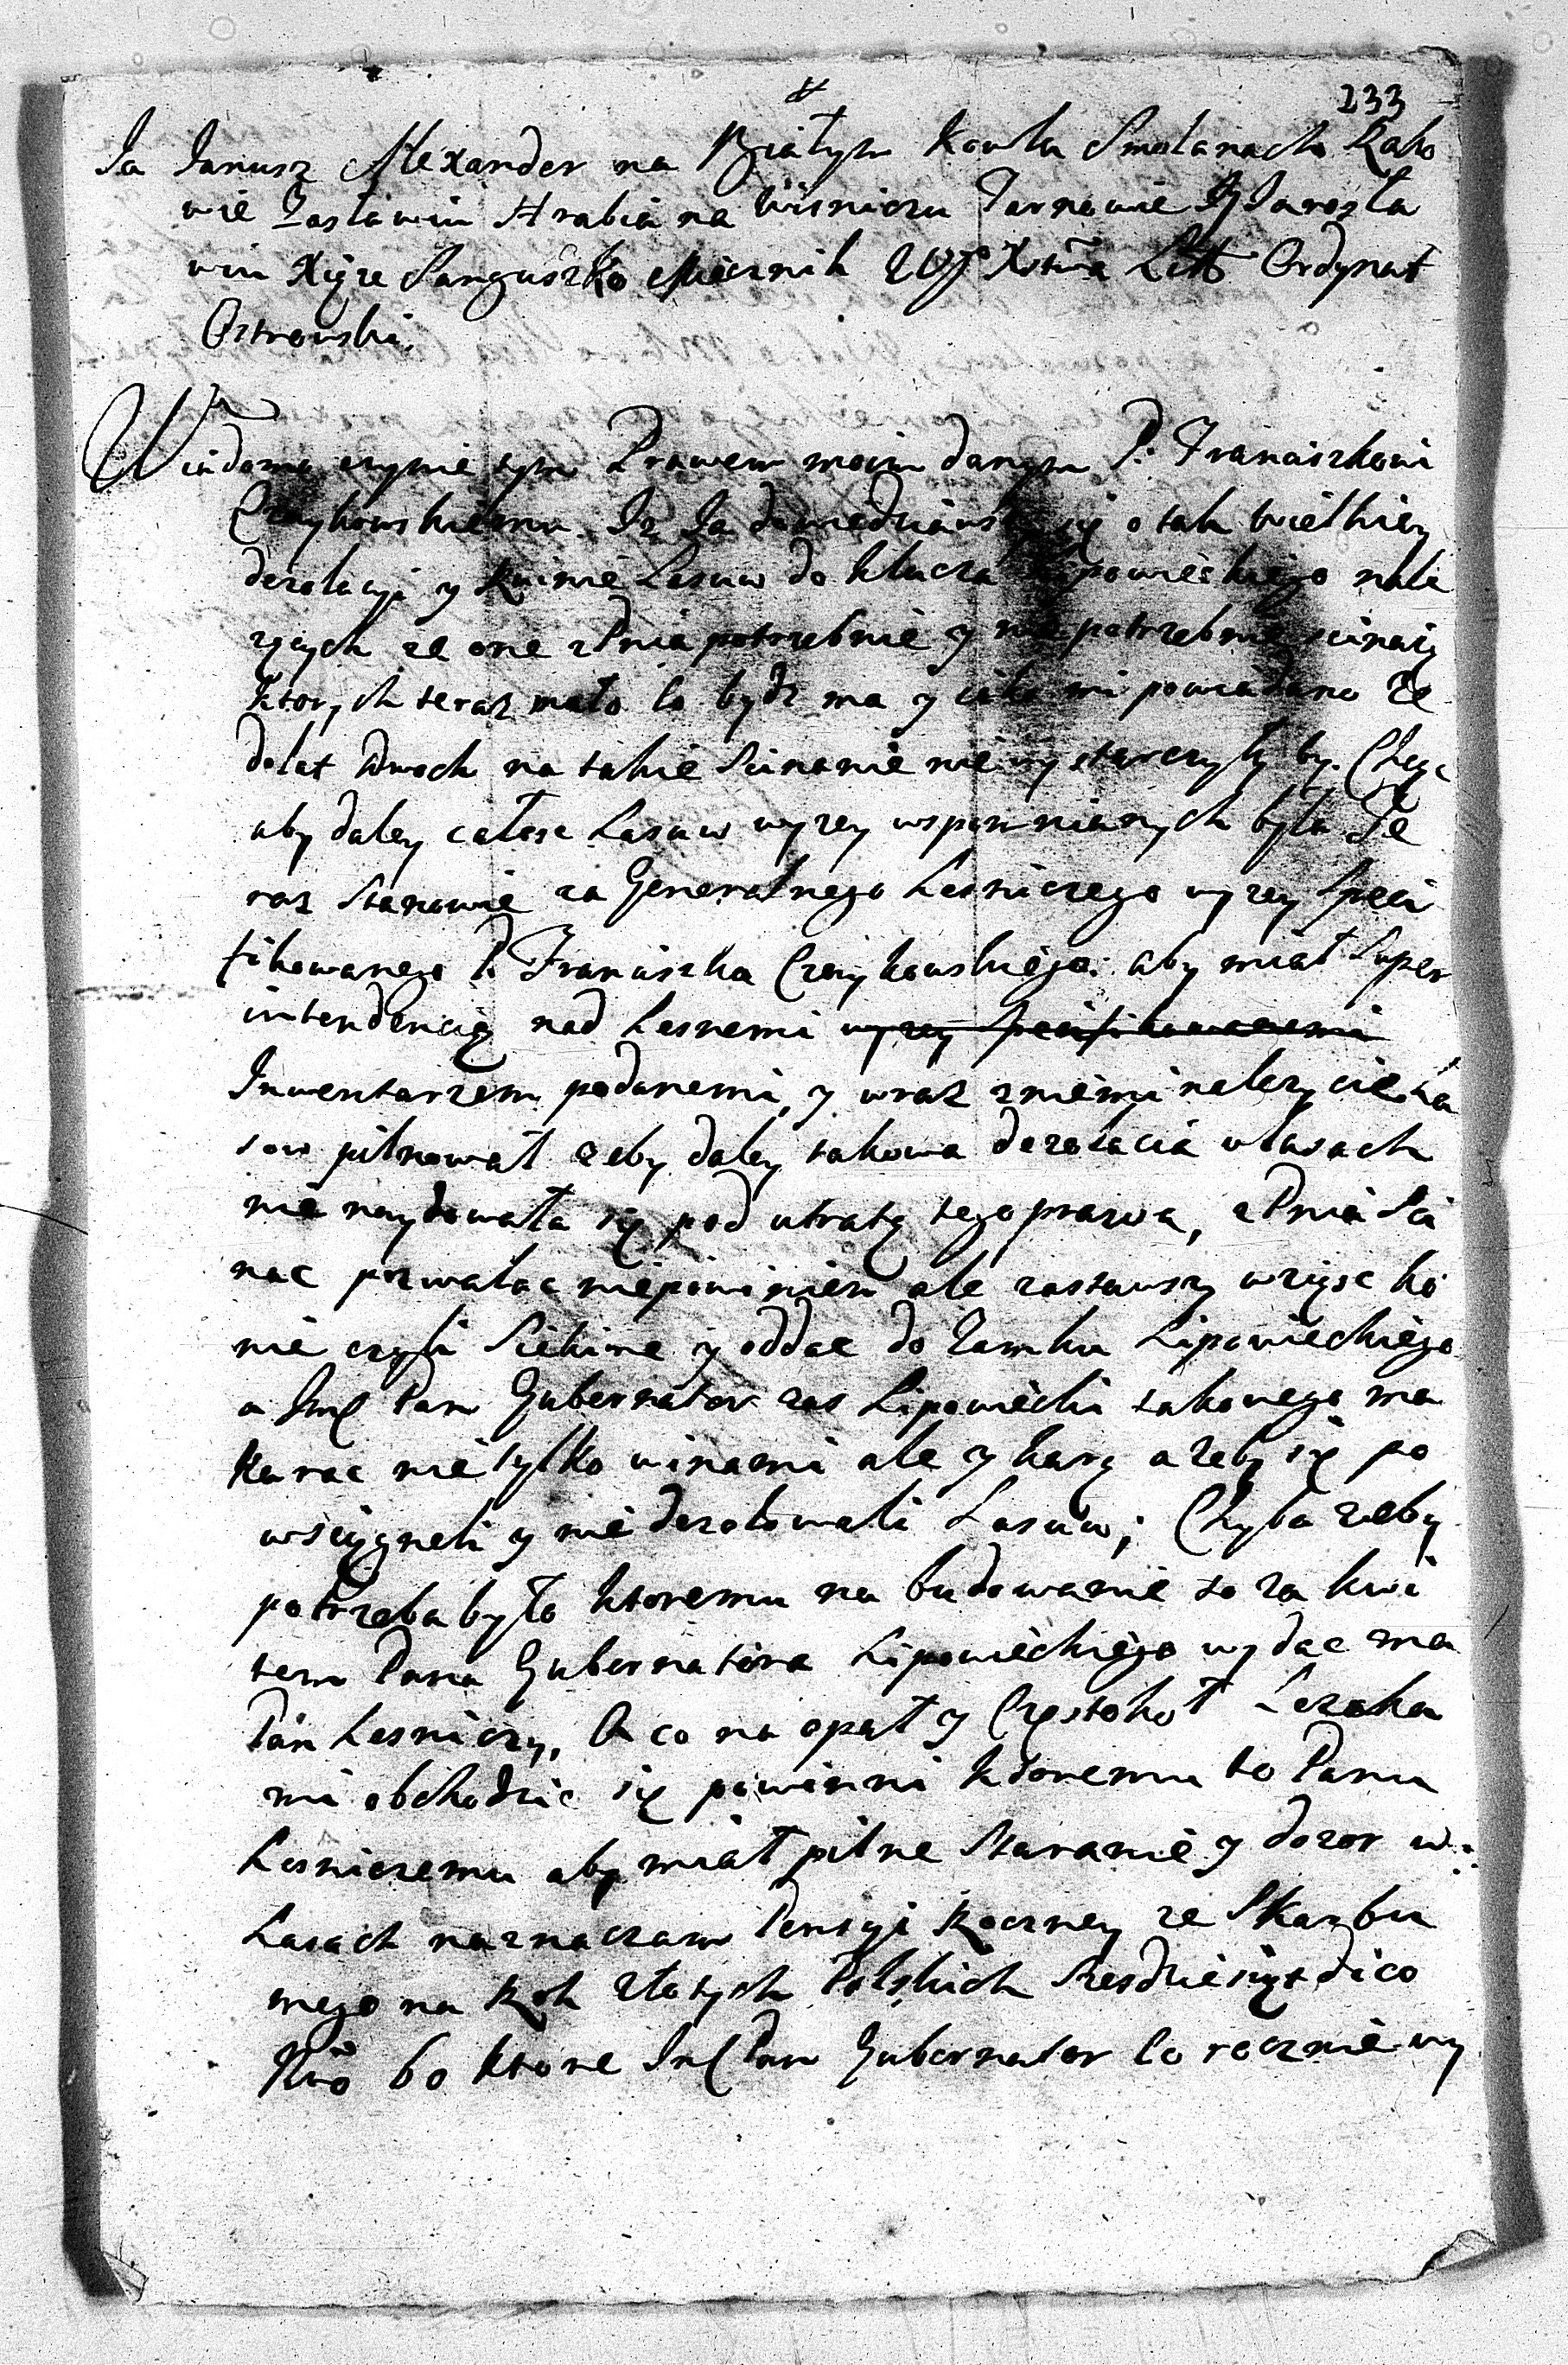 233
Ja Janusz Alexander na Białym Kowlu Smolanach Rako
wie Zasławiu Hrabia na Wisniczu Tarnowie y Jarosła
wiu Xiąze Sanguszko Miecznik WX Xstwa Litt Ordynat
Ostrowski,
Wiadomo czynie tym Prawem moim danym P. Franciszkowi
Iz Ja dowiedziawszy się o tak wielkiey
dezolacyi y Ruinie Lasuw do Klucza Lipowieckiego nale
zących ze one zDnia potrzebnie y nie potrzebnie scinaią
ktorych teraz mało co bydz ma y iako mi powiadano ze
dolat dwoch na takie Scinanie nie wystarczyły by. Chcąc
aby daley całosc Lasuw wyzey wspomnianych była Te
raz Stanowie za Generalnego Lesniczego wyzey Speci
fikowanego P. Franciszka aby miał Super
intendencią nad Lesnemi wyzey specifikowanemi
Inwentarzem podanemi, y wraz zniemi nalezycie La
sow pilnował zeby daley takowa dezolacia wlasach
nie naydowała się pod utratą tego prawa, zDnia Sci
nac pozwalac niepowinien ale zastawszy wziąsc ko
nie czyli Siekire y oddac do Zamku Lipowieckiego
a Jmć Pan Gubernator zas Lipowiecki takowego ma
karac nie tylko winami ale y karą azeby się po
wsciągneli y nie dezolowali Lasuw; Chyba zeby
potrzeba było ktoremu na budowanie to za kwi
tem Pana Gubernatora Lipowieckiego wydac ma
Pan Lesniczy, A co na opał y Częstokoł Lezaka
mi obchodzic się powinni ktoremu to Panu
Lesniczemu aby miał pilne Staranie y dozor w
Lasach naznaczam Pensyi Roczney ze Skarbu
mego na Rok złotych Polskich Szesdziesiąt dico
Nro 60 ktore Jmć Pan Gubernator co rocznie wy